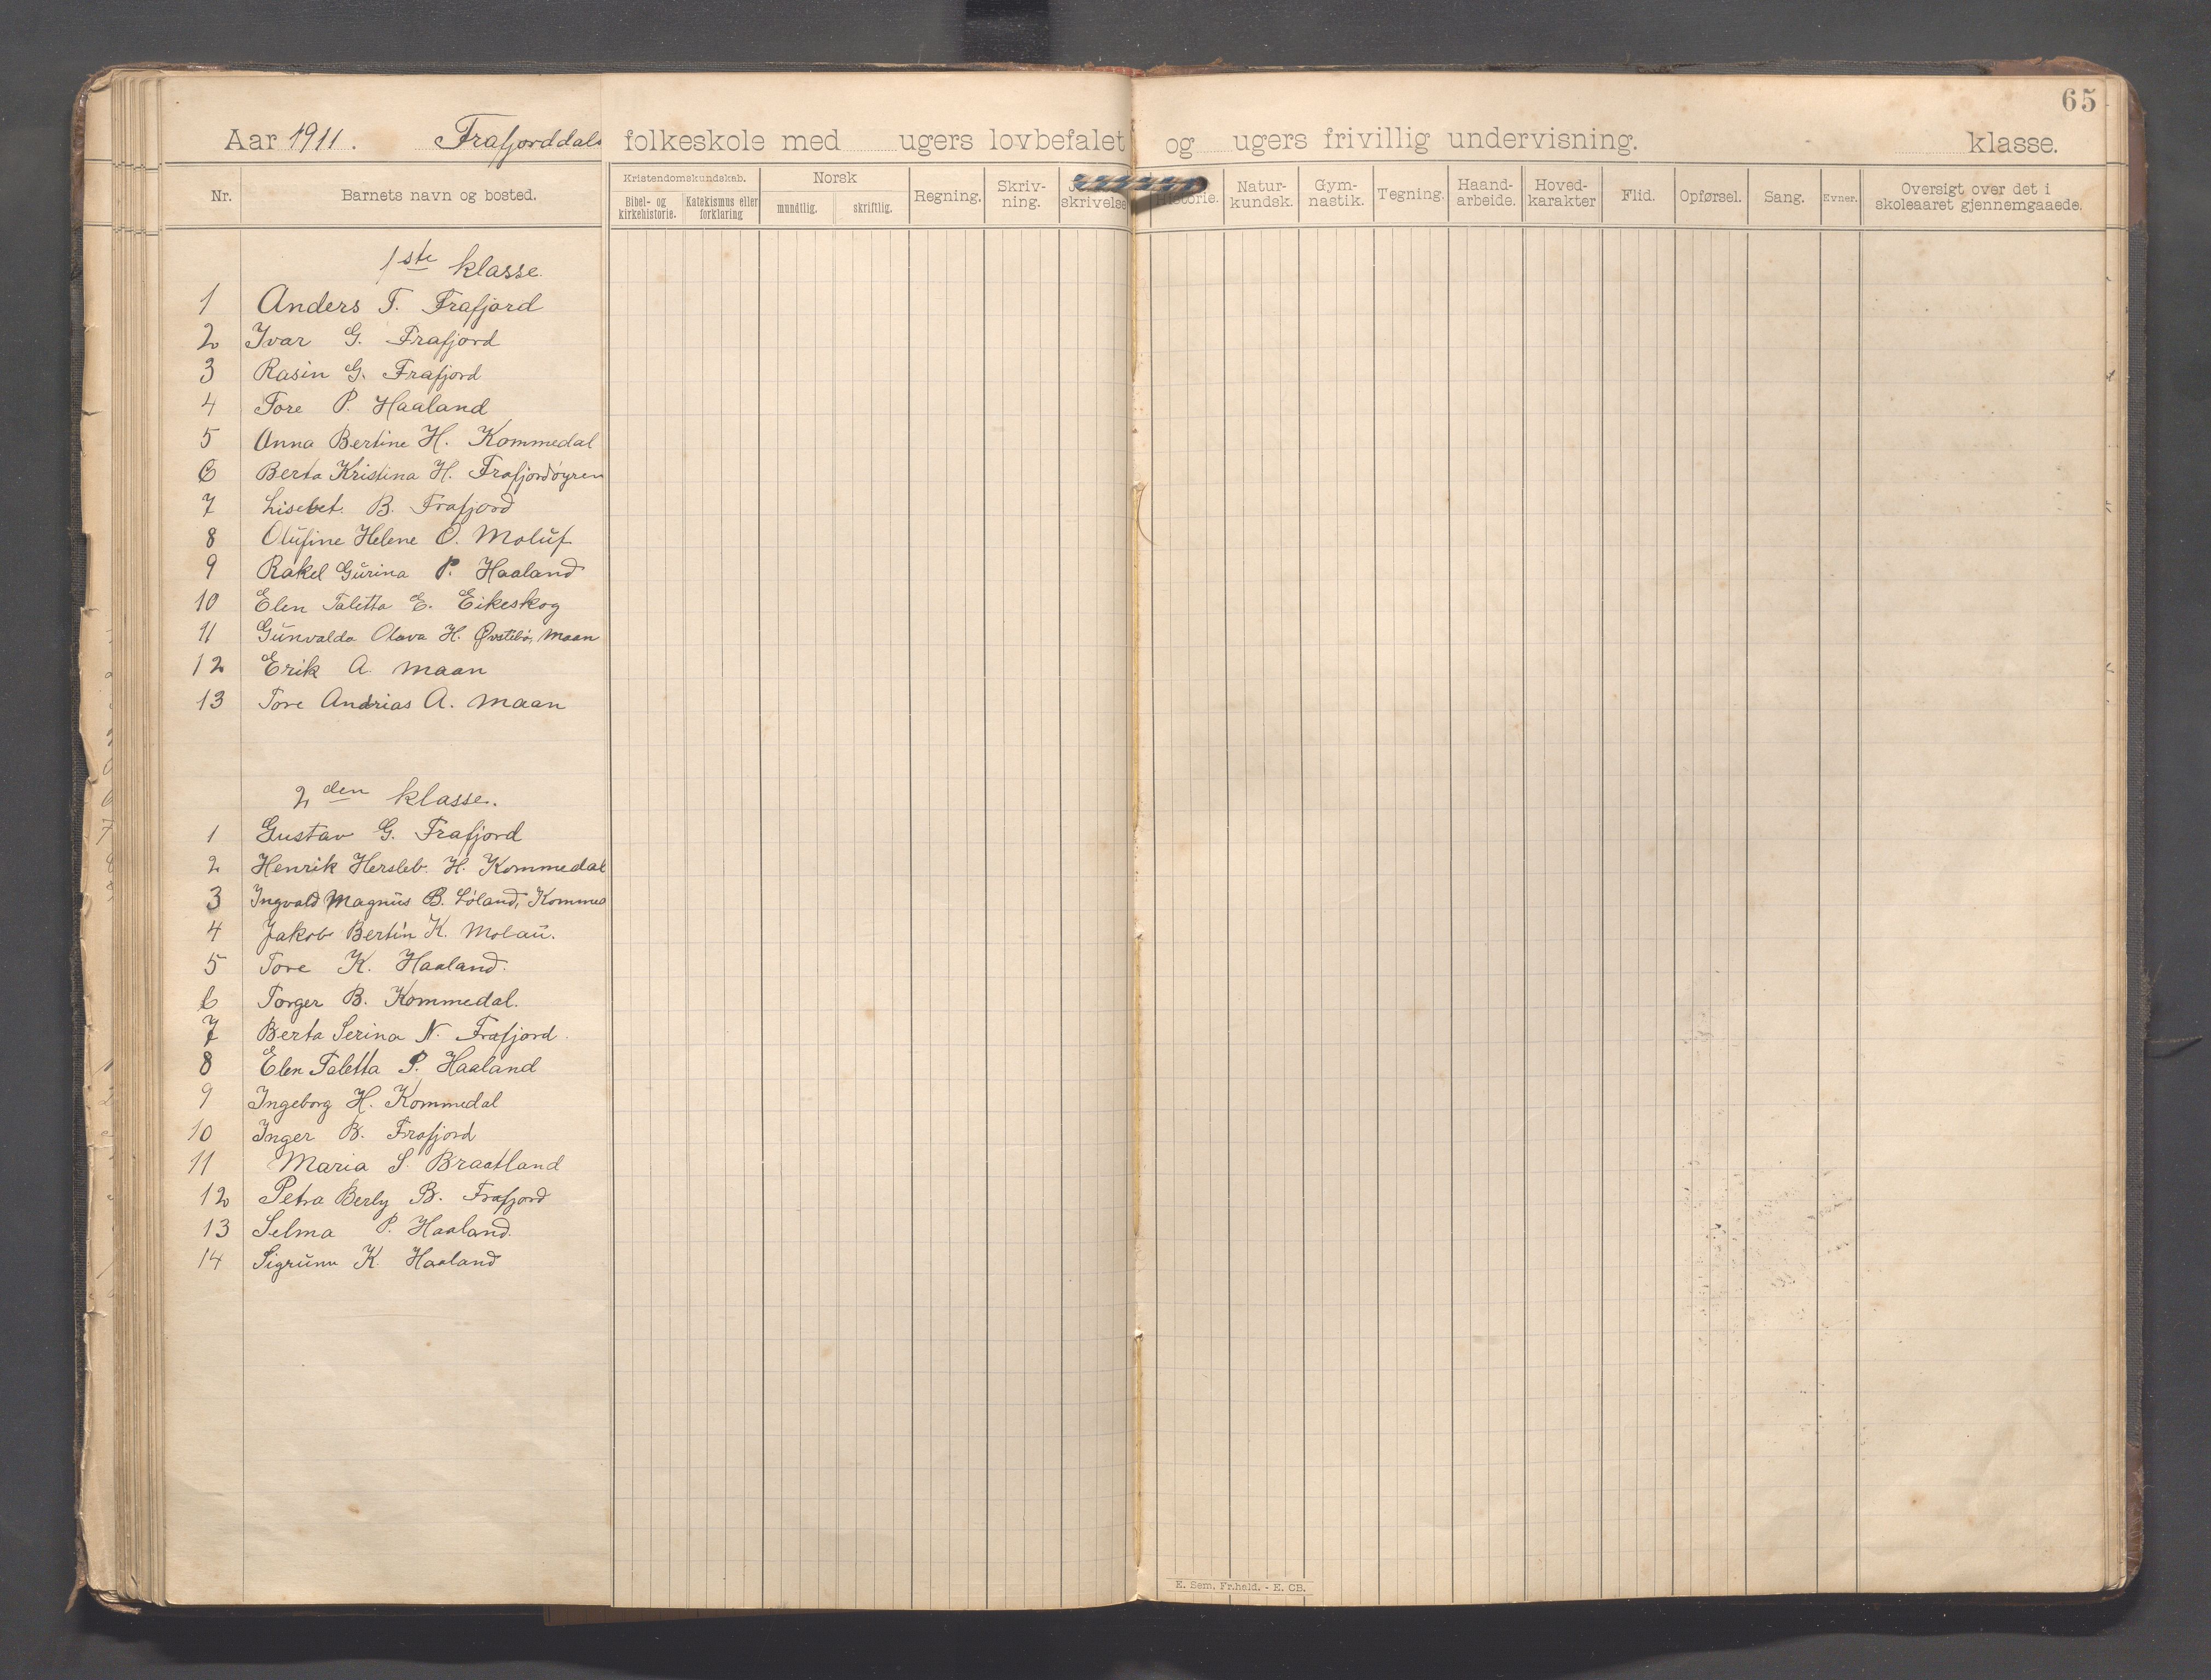 65
Aar 1911. Frafjorddals folkeskole med ugers lovbefalet og ugers frivillig undervisning. klasse.
Nr. Barnets navn og bosted. Kristendomskundskab. Bibel- og kirkehistorie. Katekismus eller forklaring Norsk mundtlig. skriftlig. Regning. Skriv-ning. skrivelse Historie. Natur-kundsk. Gym-nastik. Tegning. Haand-arbeide. Hoved-karakter Flid. Opførsel. Sang. Evner. Oversigt over det i skoleaaret gjennemgaaede.
1ste klasse.
1 Anders T. Frafjord
2 Ivar G. Frafjord
3 Rasin G. Frafjord
4 Tore P. Haaland
5 Anna Bertine H. Kommedal
6 Berta Kristina H. Frafjordøyren
7 Lisebet. B. Frafjord
8 Olufine Helene O. Moluf
9 Rakel Gurina P. Haaland
10 Elen Taletta E. Eikeskog
11 Gunvalda Olava H. Østebø, Maan
12 Erik A. Maan
13 Tore Andrias A. Maan
2den klasse.
1 Gustav G. Frafjord
2 Henrik Hersleb. H. Kommedal
3 Ingvald Magnus B. Løland, Kommed
4 Jakob Bertin K. Molau.
5 Tore K. Haaland.
6 Torger B. Kommedal.
7 Berta Serina N. Frafjord.
8 Elen Taletta P. Haaland
9 Ingeborg H. Kommedal
10 Inger B. Frafjord
11 Maria S. Braatland
12 Petra Berly B. Frafjord
13 Selma P. Haaland.
14 Sigrunn K. Haaland
E. Sem, Fr.hald. - E. CB.